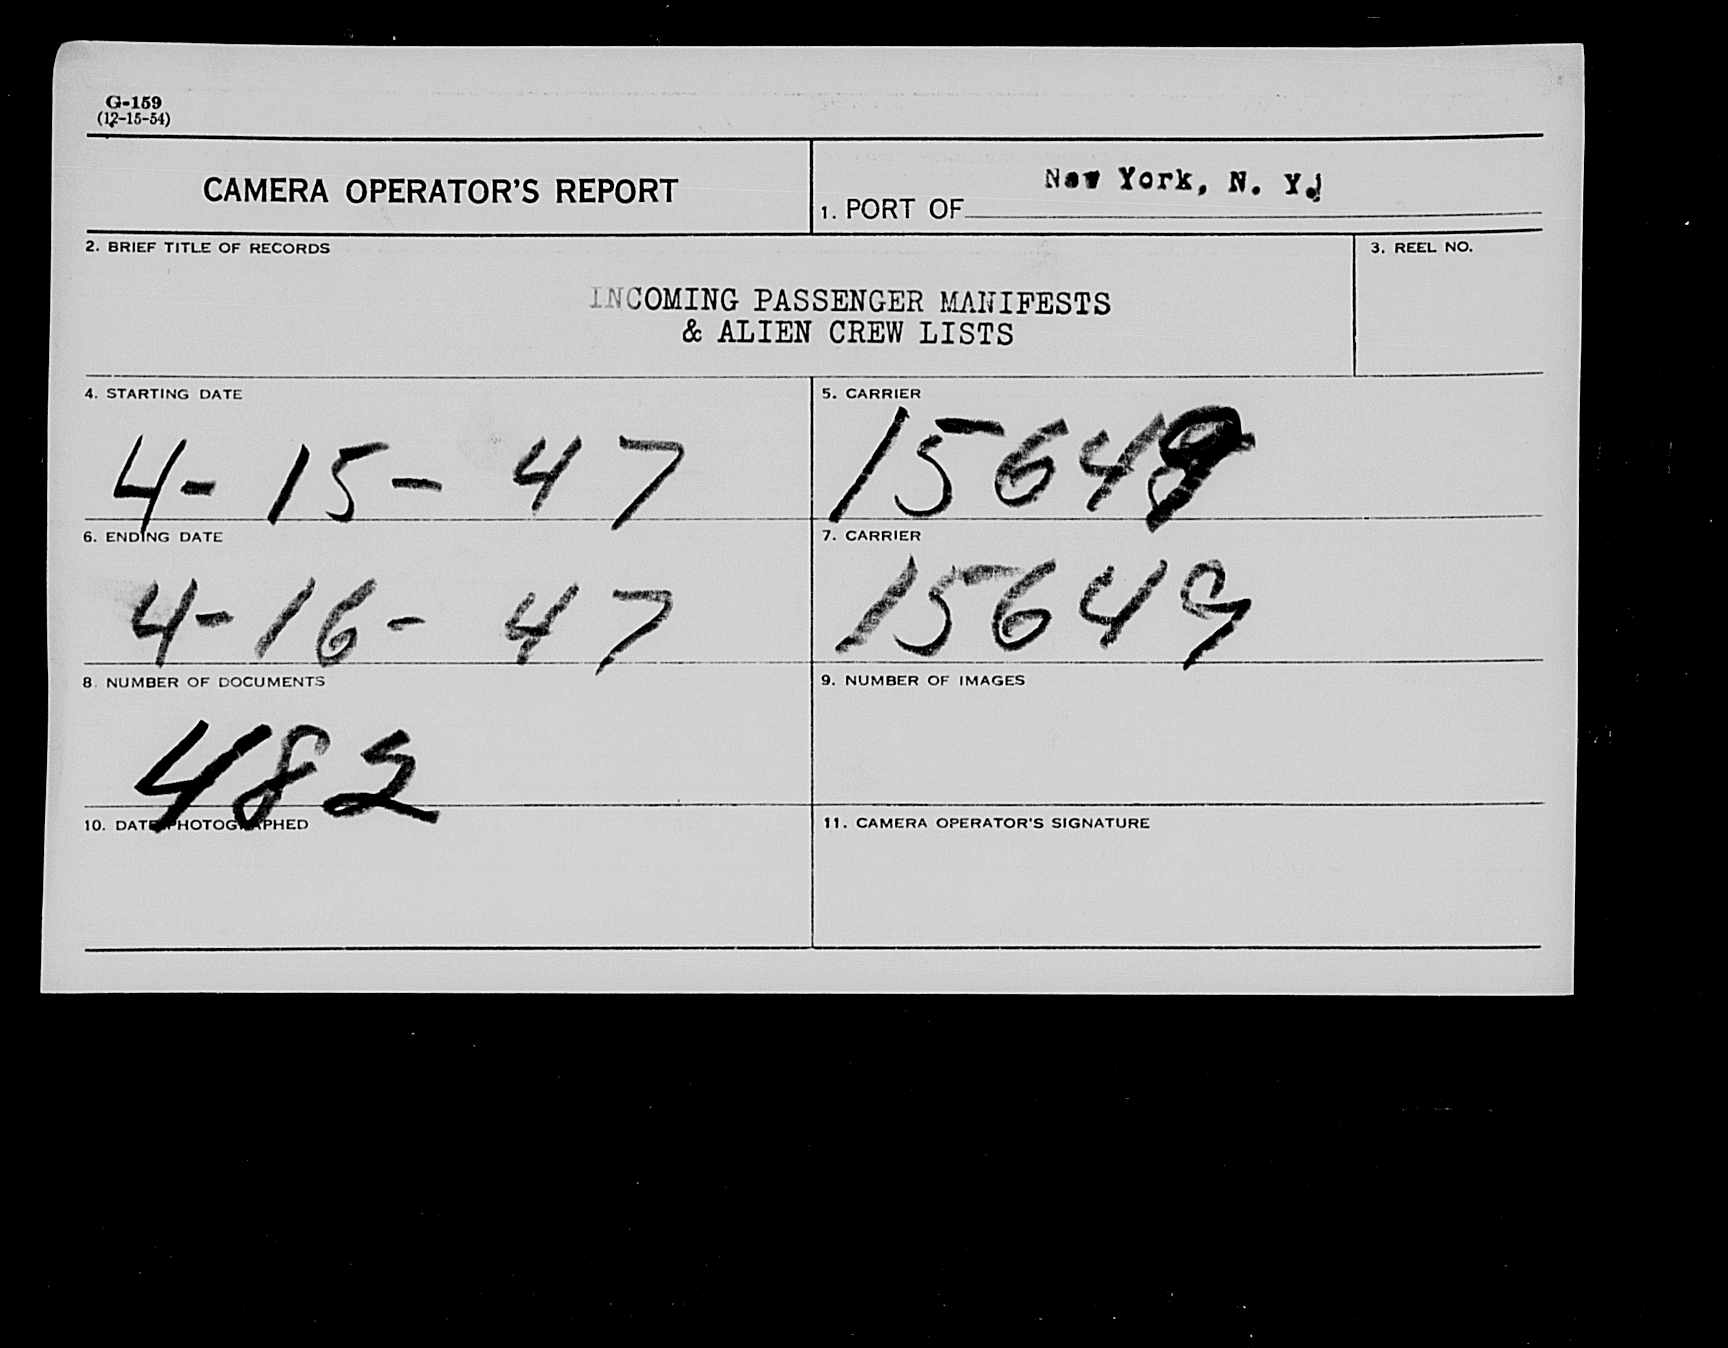 G-159
(12-15-54)
CAMERA OPERATOR'S REPORT
New York, N. Y.
1. PORT OF
2. BRIEF TITLE OF RECORDS
3. REEL NO.
INCOMING PASSENGER MANIFESTS
& ALIEN CREW LISTS
4. STARTING DATE
4-15-47
5. CARRIER
6. ENDING DATE
4-16-47
7. CARRIER
15649
8. NUMBER OF DOCUMENTS
482
9. NUMBER OF IMAGES
10. DATE PHOTOGRAPHED
11. CAMERA OPERATOR'S SIGNATURE